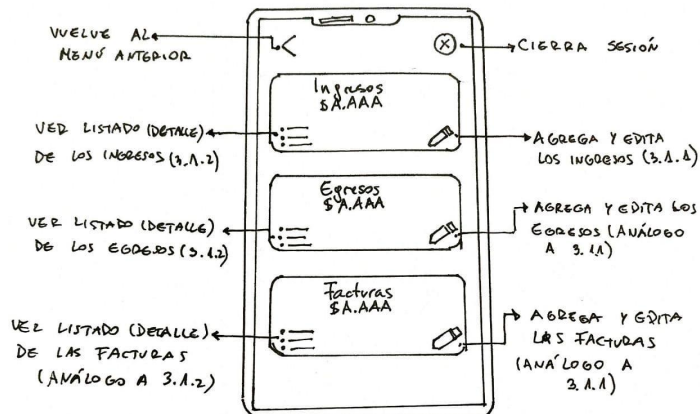 VUELVE AL
MENÚ ANTERIOR
CIERRA SESIÓN
Ingresos
$A.AAA
VER LISTADO (DETALLE)
DE LOS INGRESOS (3.1.2)
AGREGA Y EDITA
LOS INGRESOS (3.1.1)
Egresos
$A.AAA
VER LISTADO (DETALLE)
DE LOS EGRESOS (3.1.2)
AGREGA Y EDITA LOS
EGRESOS (ANÁLOGO
A 3.1.1)
Facturas
$A.AAA
VER LISTADO (DETALLE)
DE LAS FACTURAS
(ANÁLOGO A 3.1.2)
AGREGA Y EDITA
LAS FACTURAS
(ANÁLOGO A
3.1.1)